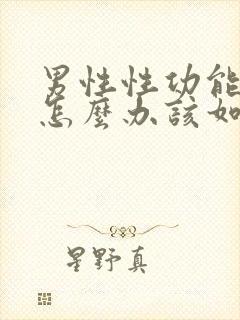 男性性功能
怎麼办該如
星野真